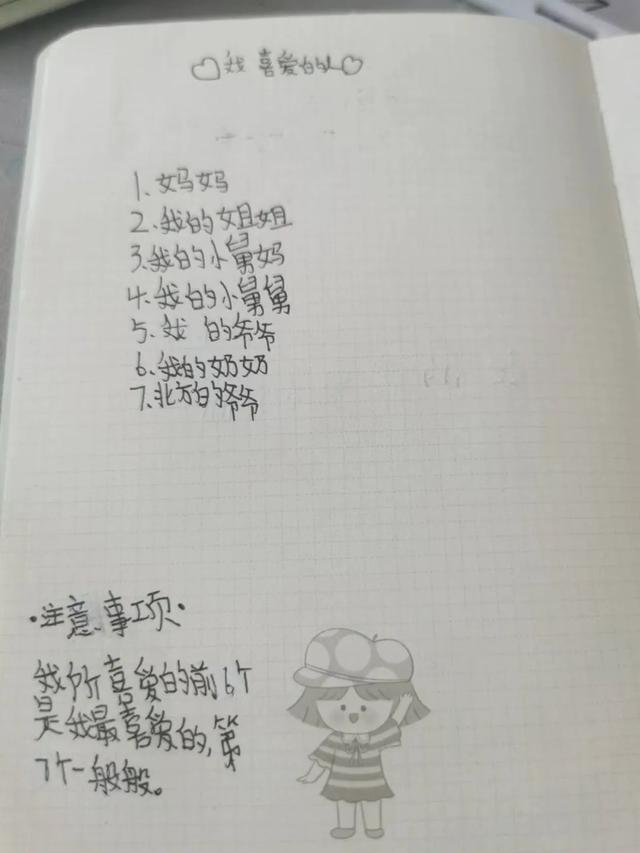 ♡我喜爱的人♡
1、妈妈
2、我的姐姐
3、我的小舅妈
4、我的小舅舅
5、我的爷爷
6、我的奶奶
7、北方的爷爷
·注意事项·
我所喜爱的前6个
是我最喜爱的,第
7个一般般。